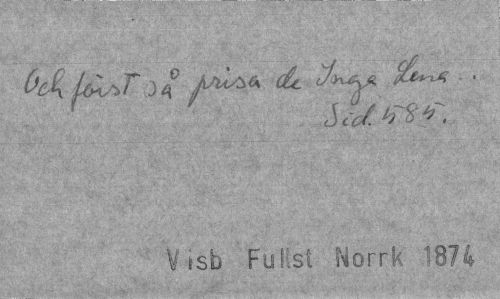 Och först så prisa de Inga Lena..
Sid. 585.
Visb Fullst Norrk 1874